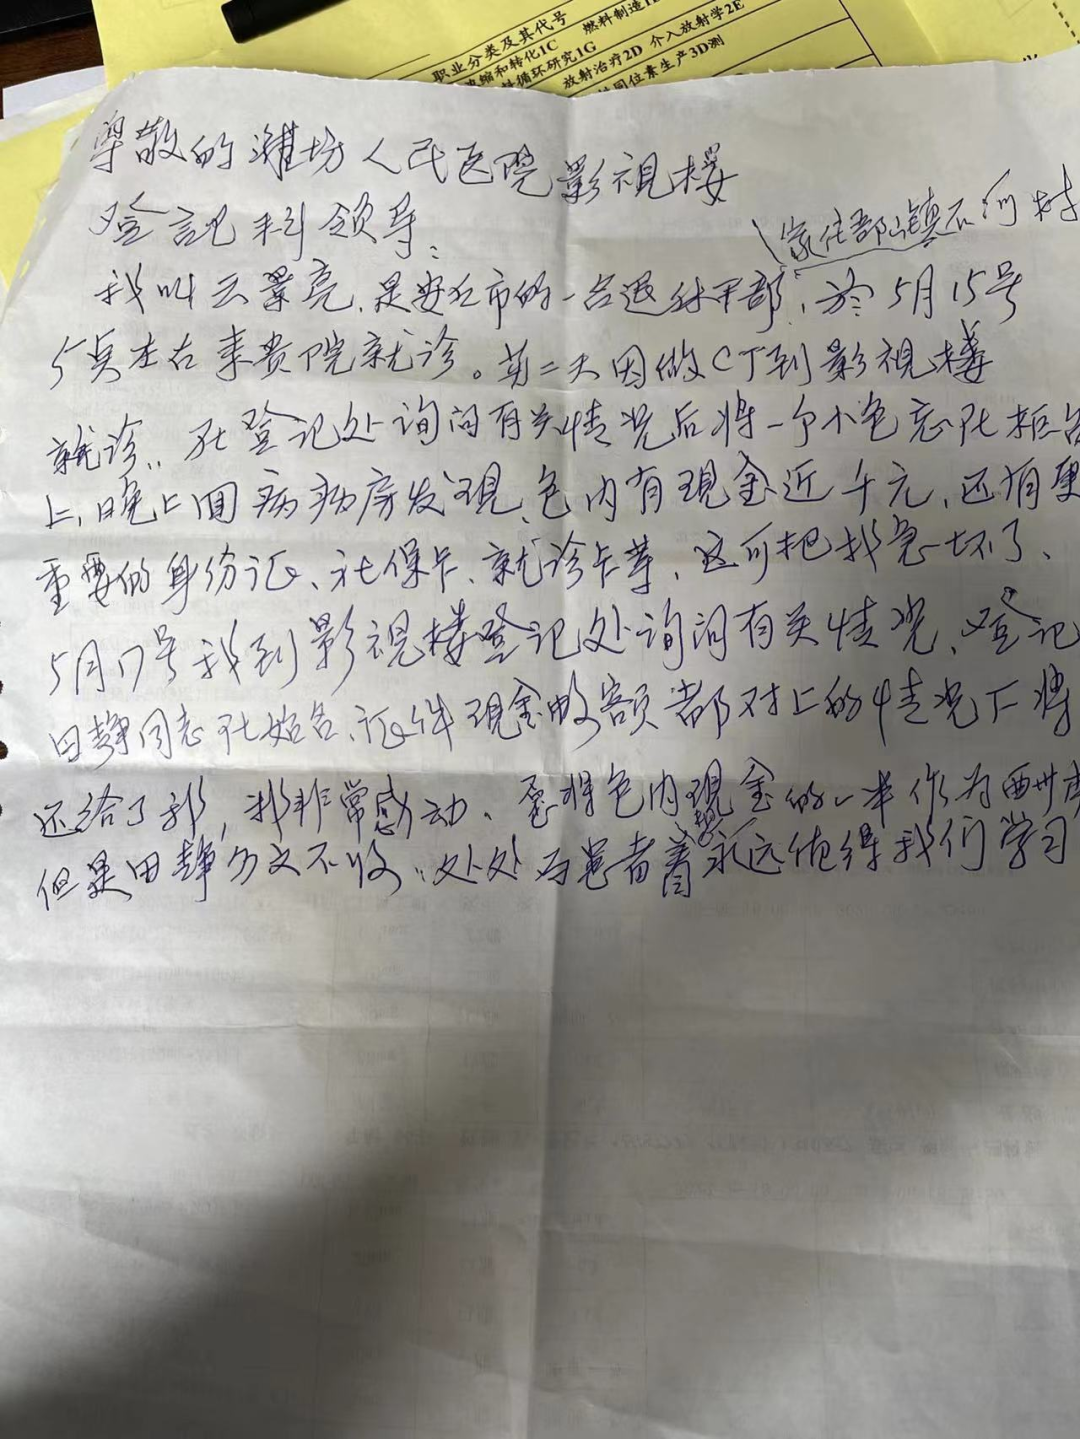 职业分类及其代号
燃料制造1
缩和转化1C
循环研究1G
放射治疗2D 介入放射学2E
同位素生产3D测
尊敬的潍坊人民医院影視楼
登記科领导:
家住郚山镇石河村
我叫云景亮,是安丘市的一名退休干部,於5月15号
5点左右来贵院就诊。第二天因做CT到影視楼
就诊,在登记处询问有关情况后将一个小包忘在柜台
上,晚上回病病房发现,包内有现金近千元,还有更
重要的身份证、社保卡、就诊卡等,这可把我急坏了、
5月17号我到影視楼登记处询问有关情况、登记
田静同志在姓名、证件现金数额都对上的情况下将
还给了我,我非常感动、愿将包内现金的一半作为
但是田静分文不收,处处为患者着想永远值得我们学习